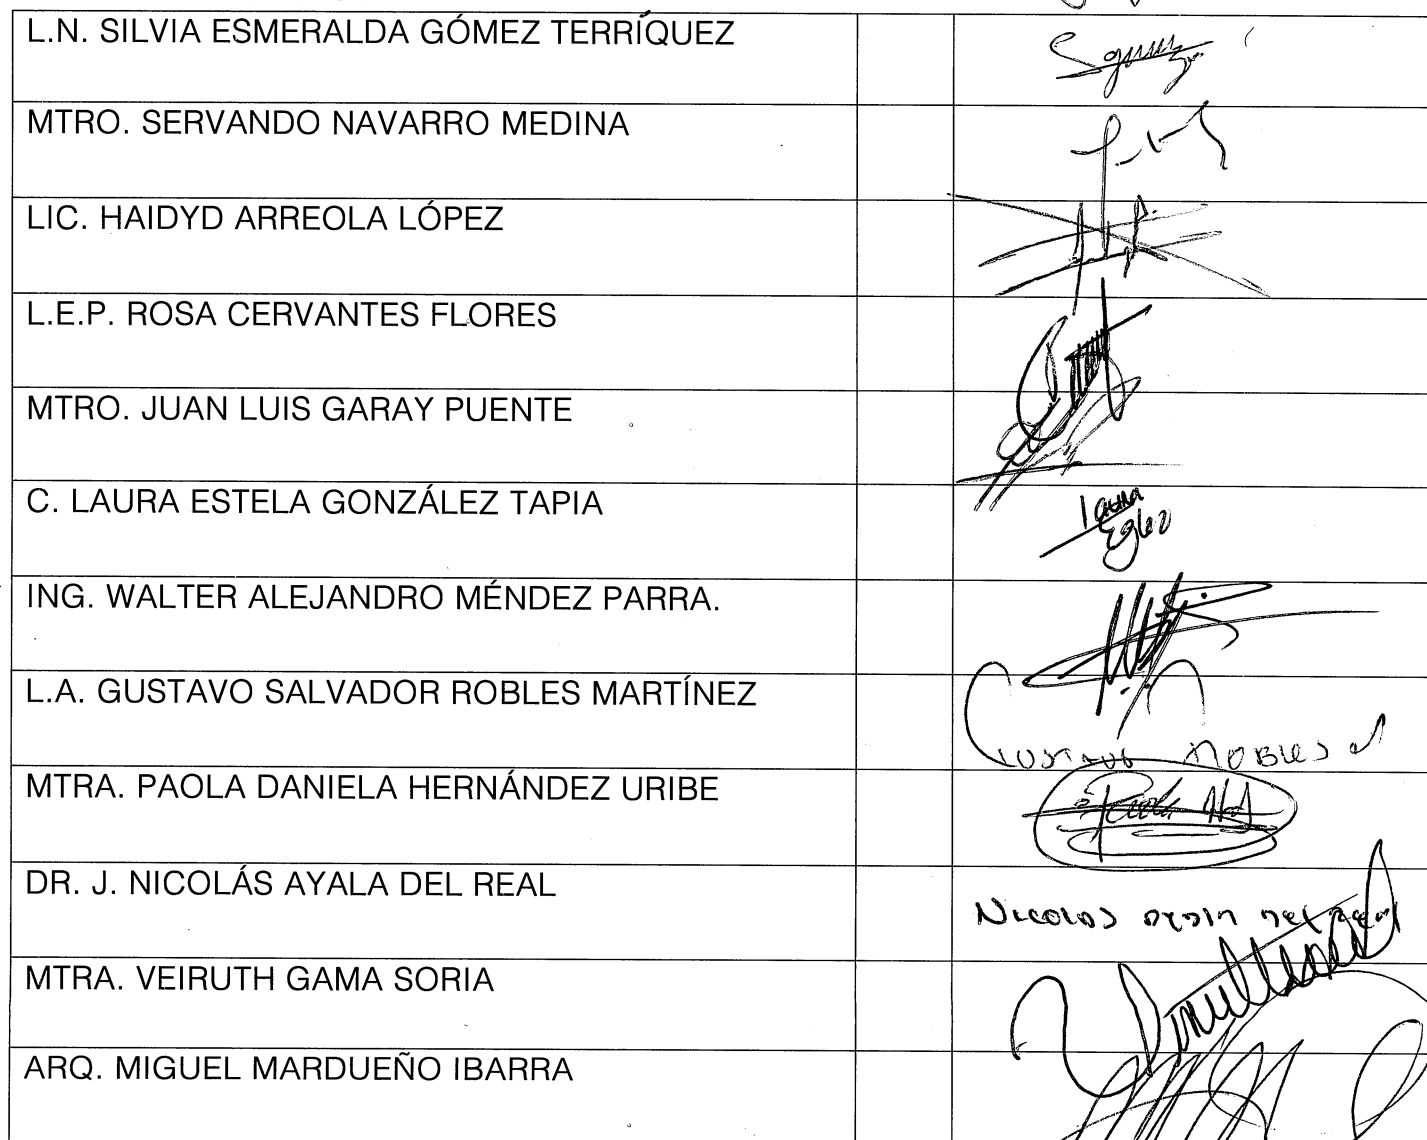 L.N. SILVIA ESMERALDA GÓMEZ TERRÍQUEZ
MTRO. SERVANDO NAVARRO MEDINA
LIC. HAIDYD ARREOLA LÓPEZ
L.E.P. ROSA CERVANTES FLORES
MTRO. JUAN LUIS GARAY PUENTE
C. LAURA ESTELA GONZÁLEZ TAPIA
Laura
EGlez
ING. WALTER ALEJANDRO MÉNDEZ PARRA.
L.A. GUSTAVO SALVADOR ROBLES MARTÍNEZ
Gustavo Robles
MTRA. PAOLA DANIELA HERNÁNDEZ URIBE
Paola
DR. J. NICOLÁS AYALA DEL REAL
Nicolas Ayala del Real
MTRA. VEIRUTH GAMA SORIA
ARQ. MIGUEL MARDUEÑO IBARRA